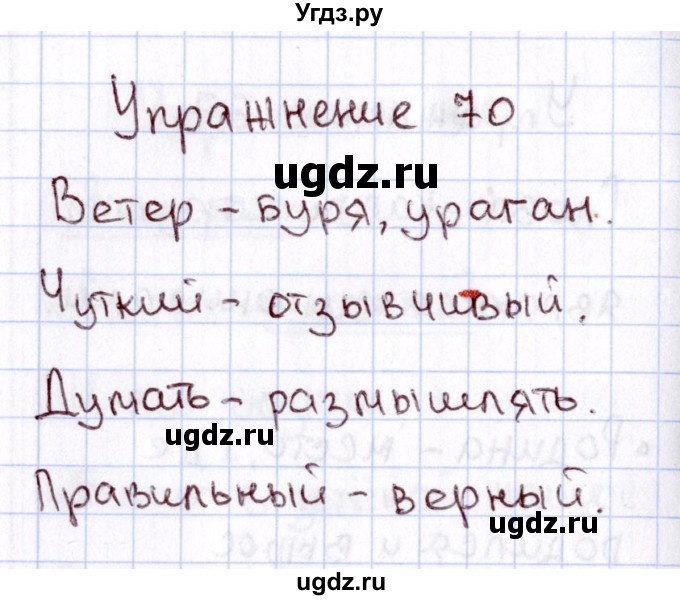 Угдз.ру
Упражнение 70
ugdz.ru
Ветер - буря, ураган.
Чуткий - отзывчивый.
Думать - размышлять.
ugdz.ru
Правильный - верный.
ugdz.ru
ugdz.ru